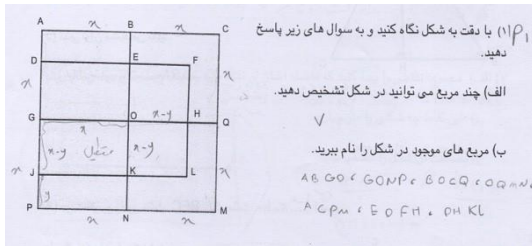 ۱۱) با دقت به شکل نگاه کنید و به سوال های زیر پاسخ
دهید.
الف) چند مربع می توانید در شکل تشخیص دهید.
۷
ب) مربع های موجود در شکل را نام ببرید.
ABGO ، GONP ، BOCQ ، OQMN
ACPM ، EOFH ، OHKL
A x B x C
D E F x
G x O x-y H Q
x-y مستطیل x-y
x J K L x
y
P x N x M